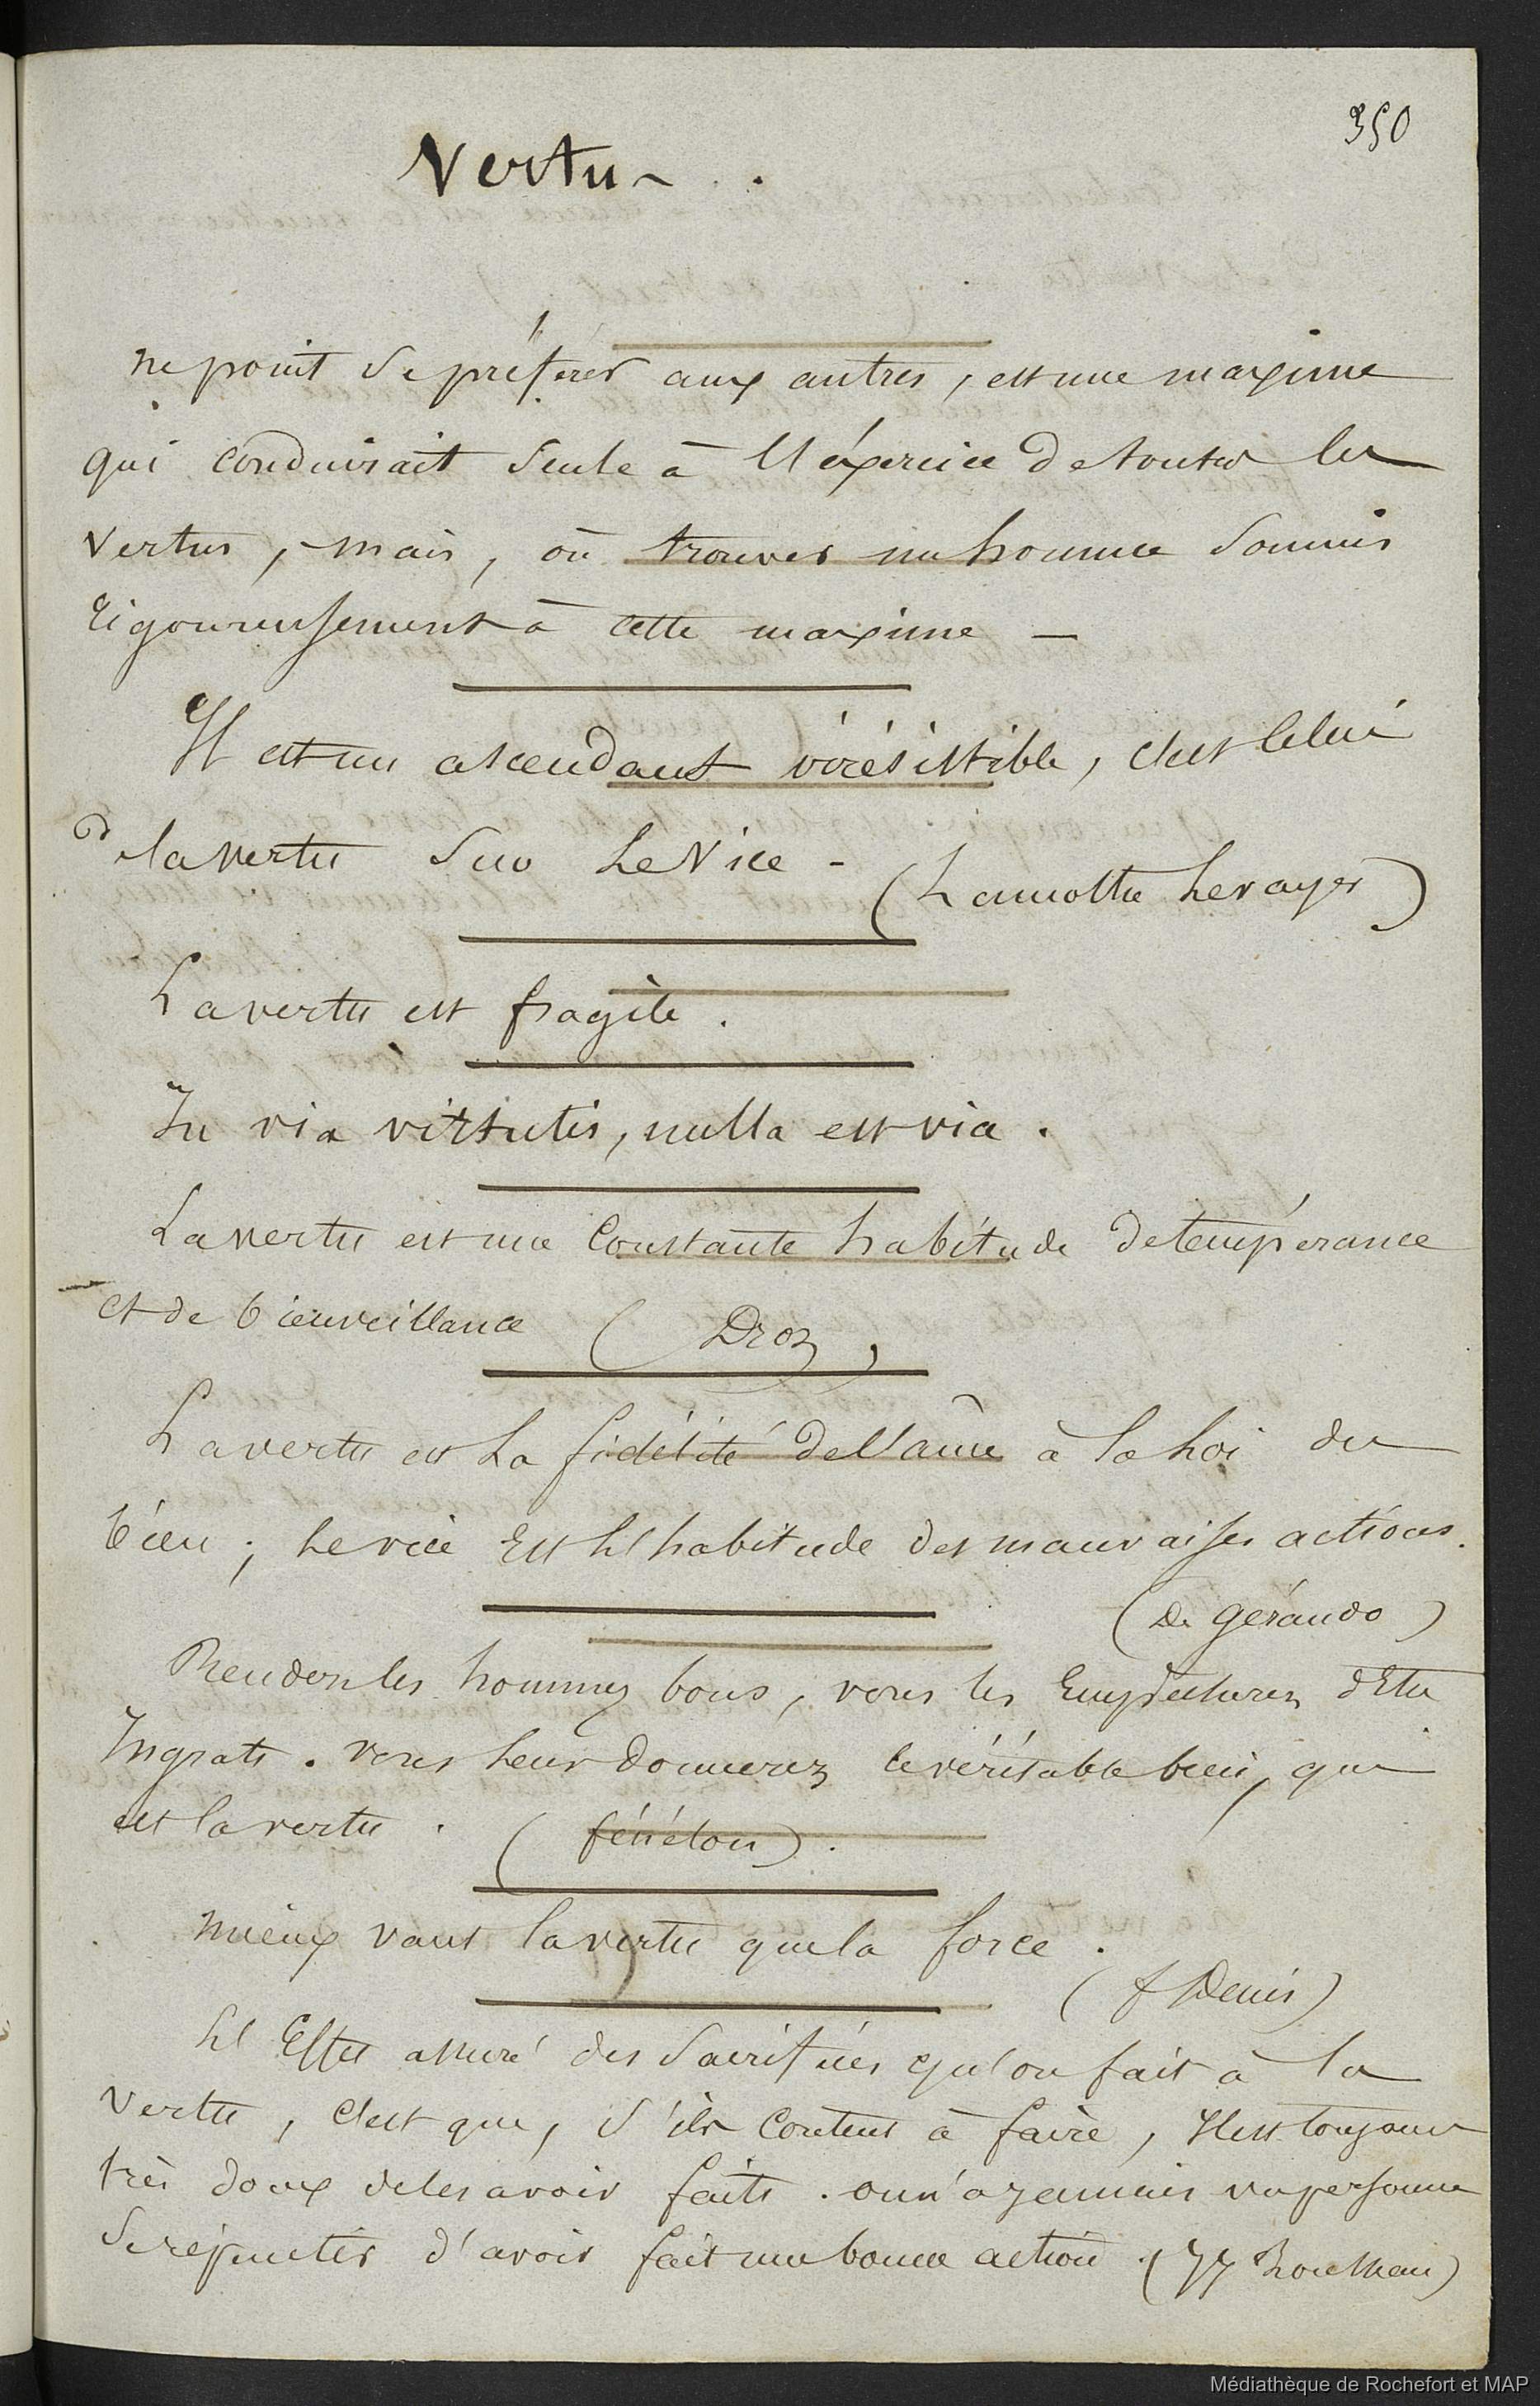 350
Vertu.
ne point se préférer aux autres, est une maxime
qui conduirait seule à l'éxercice de toutes les
vertus, mais, où trouver un homme soumis
rigoureusement à cette maxime —
Il est un ascendant irrésistible, c'est celui
de la vertu sur le vice - (Lamothe Levayer)
La vertu est fragile.
In via virtutis, nulla est via.
La vertu est une constante habitude de tempérance
et de bienveillance (Droz)
La vertu est la fidélité de l'âme à la loi du
bien; le vice est l'habitude des mauvaises actions.
(de gérando)
Rendez les hommes bons, vous les empêcherez d'être
Ingrats. vous leur donnerez le véritable bien, qui
est la vertu. (fénélon).
mieux vaut la vertu que la force.
(f Denis)
L'Effet assuré des sacrifices qu'on fait à la
vertu, c'est que, s'ils coutent à faire, Il est toujours
très doux de les avoir faits. on n'a jamais vu personne
se répentir d'avoir fait une bonne action. (JJ Rousseau)
Médiathèque de Rochefort et MAP